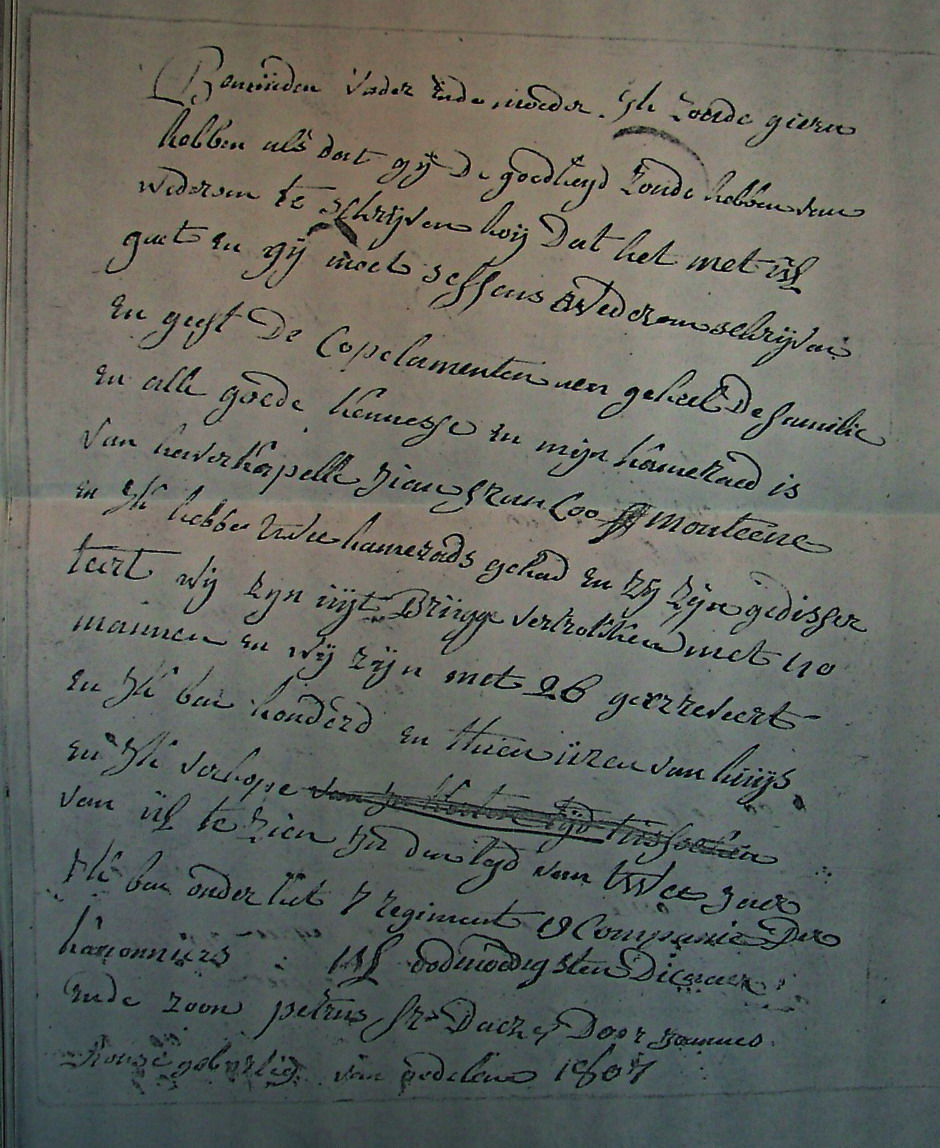 Beminden vader ende moeder. Ik zoude giern
hebben als dat gij de goedheyd zoude hebben van
wederom te schrijven hoij dat het met ul
gaet en gij moet seffens wederom schrijven
en geeft de Copelamenten aen geheel de familie
en alle goede kennesse en mijn kameraed is
van haverkapelle Jean fran Coo monteene
en Ik hebbe twee kamerads gehad en zij zijn gedisser
teert wij zijn uijt Brugge vertrokken met 110
mannen en wij zijn met 26 gearreveert
en Ik ben honderd en thien uren van huijs
en Ik verhope van
van ul te zien in den tyd van twee Jaer
Ik ben onder het 7 regiment 19 Companie der
kanonniers : ul oodmoedigsten Dienaer
ende zoon petrus frs Door Joannes
gebortig van 1807